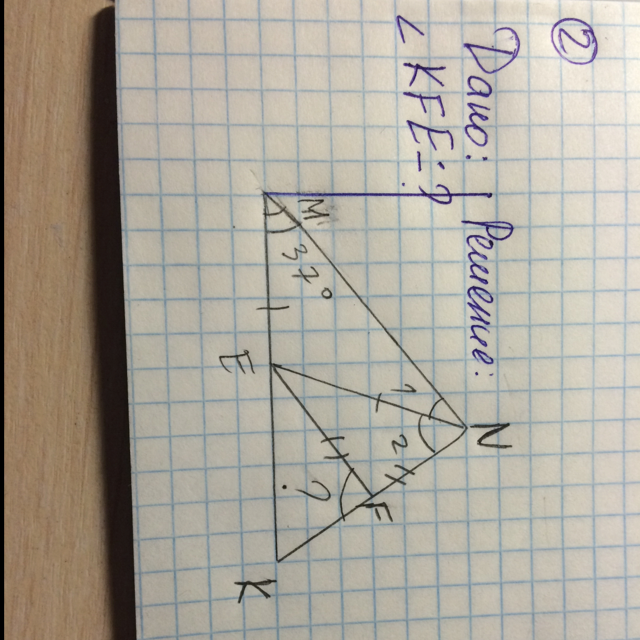 ②
Дано: Решение:
∠ KFE - ?
M
37°
N
1
2
E
F
?
K